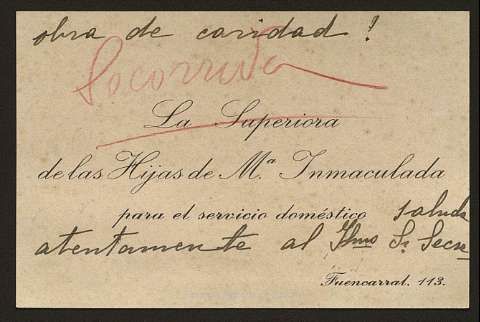 obra de caridad!
Socorrida
La Superiora
de las Hijas de Mª Inmaculada
para el servicio doméstico saluda
atentamente al Ilmo Sr Secre
Fuencarral. 113.